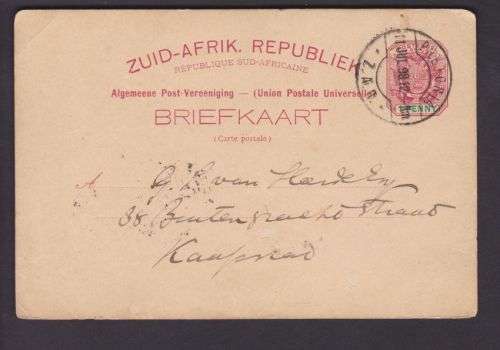 ZUID-AFRIK. REPUBLIEK
RÉPUBLIQUE SUD-AFRICAINE
Algemeene Post-Vereeniging — (Union Postale Universelle)
BRIEFKAART
(Carte postale)
PENNY
Z.A.R.
van
38 Buitengracht Straat
Kaapstad